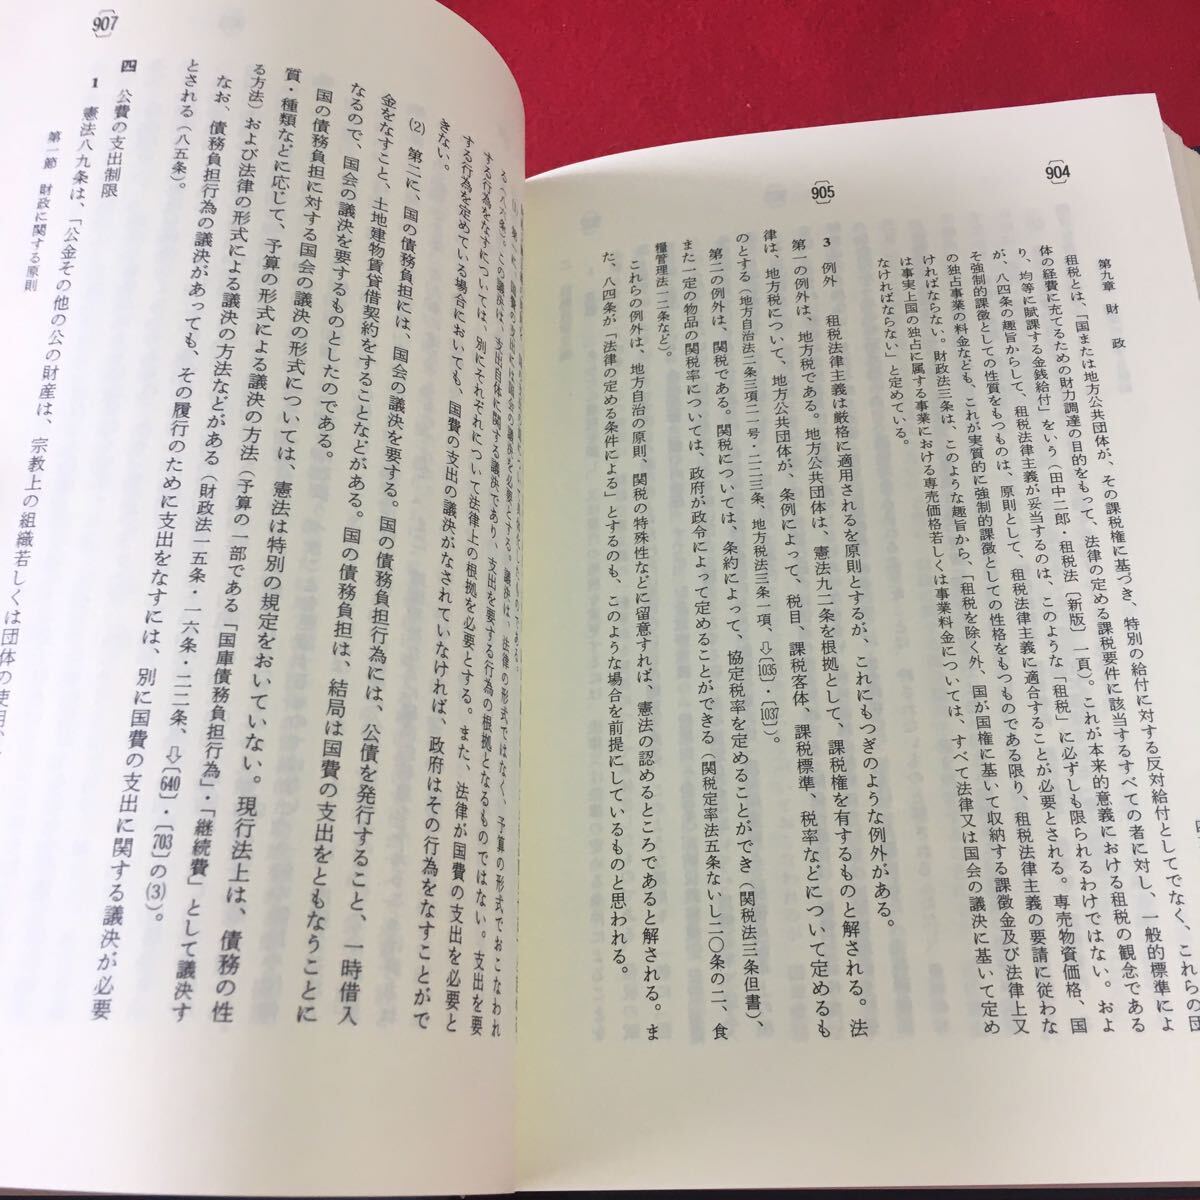 904
第九章 財 政
租税とは、「国または地方公共団体が、その課税権に基づき、特別の給付に対する反対給付としてでなく、これらの団
体の経費に充てるための財力調達の目的をもって、法律の定める課税要件に該当するすべての者に対し、一般的標準によ
り、均等に賦課する金銭給付」をいう（田中二郎・租税法〔新版〕一頁）。これが本来的意義における租税の観念である
が、八四条の趣旨からして、租税法律主義が妥当するのは、このような「租税」に必ずしも限られるわけではない。およ
そ強制的課徴としての性質をもつものは、原則として、租税法律主義に適合することが必要とされる。専売物資価格、国
の独占事業の料金なども、これが実質的に強制的課徴としての性格をもつものである限り、租税法律主義の要請に従わな
ければならない。財政法三条は、このような趣旨から、「租税を除く外、国が国権に基いて収納する課徴金及び法律上又
は事実上国の独占に属する事業における専売価格若しくは事業料金については、すべて法律又は国会の議決に基いて定め
なければならない」と定めている。
905
3 例外 租税法律主義は厳格に適用されるを原則とするが、これにもつぎのような例外がある。
第一の例外は、地方税である。地方公共団体は、憲法九二条を根拠として、課税権を有するものと解される。法
律は、地方税について、地方公共団体が、条例によって、税目、課税客体、課税標準、税率などについて定めるも
のとする（地方自治法二条三項二一号・二二三条、地方税法三条一項、⇨〔1035〕・〔1037〕）。
第二の例外は、関税である。関税については、条約によって、協定税率を定めることができ（関税法三条但書）、
また一定の物品の関税率については、政府が政令によって定めることができる（関税定率法五条ないし二〇条の二、食
糧管理法一二条など）。
これらの例外は、地方自治の原則、関税の特殊性などに留意すれば、憲法の認めるところであると解される。ま
た、八四条が「法律の定める条件による」とするのも、このような場合を前提にしているものと思われる。
する行為をなすについては、別にそれぞれについて法律上の根拠を必要とする。また、法律が国費の支出を必要と
する行為を定めている場合においても、国費の支出の議決がなされていなければ、政府はその行為をなすことがで
きない。
(2) 第二に、国の債務負担には、国会の議決を要する。国の債務負担行為には、公債を発行すること、一時借入
金をなすこと、土地建物賃貸借契約をすることなどがある。国の債務負担は、結局は国費の支出をともなうことに
なるので、国会の議決を要するものとしたのである。
国の債務負担に対する国会の議決の形式については、憲法は特別の規定をおいていない。現行法上は、債務の性
質・種類などに応じて、予算の形式による議決の方法（予算の一部である「国庫債務負担行為」・「継続費」として議決す
る方法）および法律の形式による議決の方法などがある（財政法一五条・一六条・二二条、⇨〔640〕・〔703〕の(3)）。
なお、債務負担行為の議決があっても、その履行のために支出をなすには、別に国費の支出に関する議決が必要
とされる（八五条）。
907
四 公費の支出制限
1 憲法八九条は、「公金その他の公の財産は、宗教上の組織若しくは団体の使用、
第一節 財政に関する原則